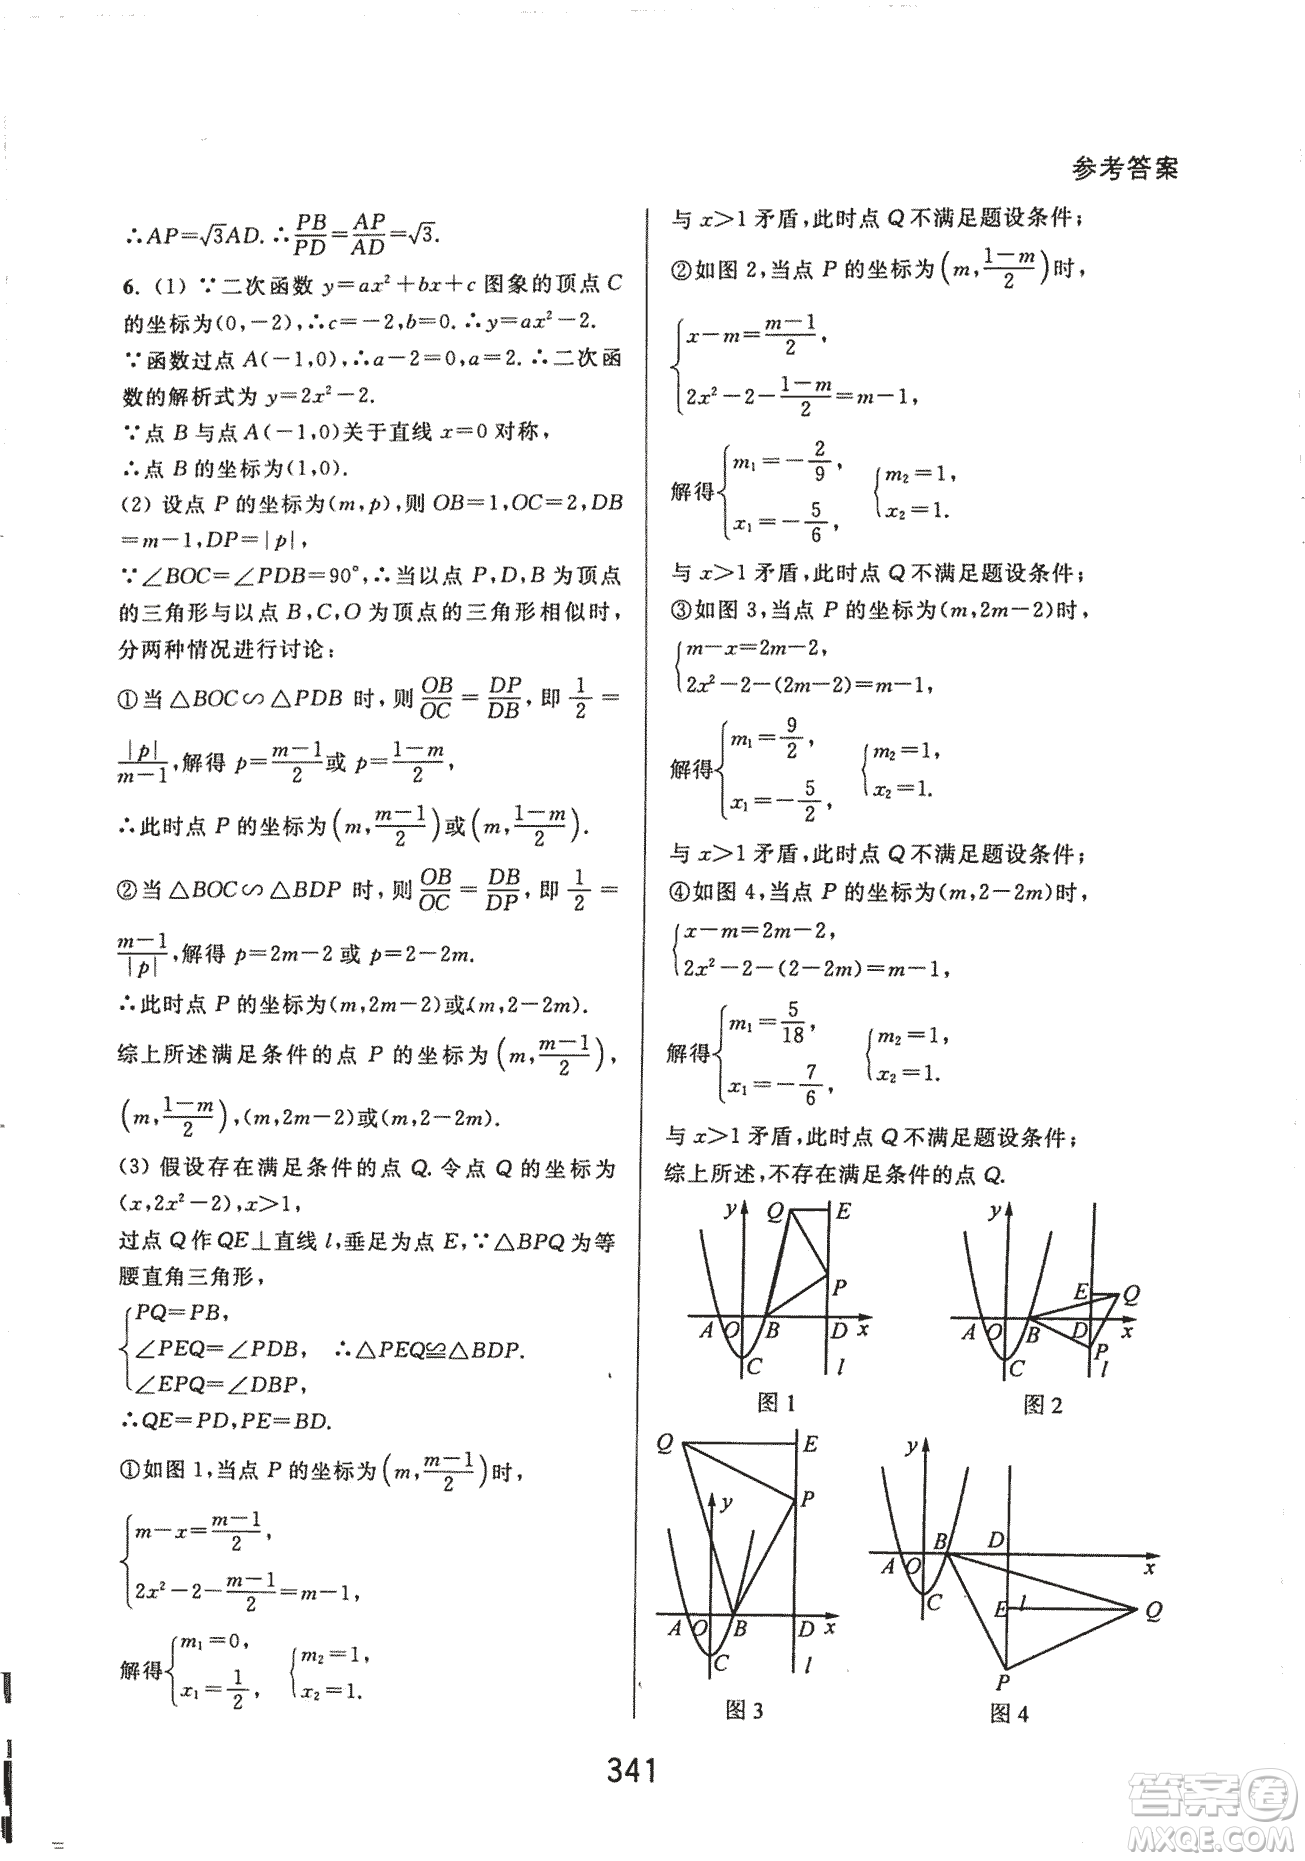 参考答案
∴AP=√3AD.∴PB/PD=AP/AD=√3.
6. (1) ∵二次函数 y=ax²+bx+c 图象的顶点 C
的坐标为(0,-2),∴c=-2,b=0.∴y=ax²-2.
∵函数过点 A(-1,0),∴a-2=0,a=2.∴二次函
数的解析式为 y=2x²-2.
∵点 B 与点 A(-1,0)关于直线 x=0 对称,
∴点 B 的坐标为(1,0).
(2) 设点 P 的坐标为(m,p),则 OB=1,OC=2,DB
=m-1,DP=|p|,
∵∠BOC=∠PDB=90°,∴当以点 P,D,B 为顶点
的三角形与以点 B,C,O 为顶点的三角形相似时,
分两种情况进行讨论:
①当△BOC∽△PDB 时,则 OB/OC=DP/DB,即 1/2=
|p|/(m-1),解得 p=(m-1)/2 或 p=(1-m)/2,
∴此时点 P 的坐标为(m,(m-1)/2)或(m,(1-m)/2).
②当△BOC∽△BDP 时,则 OB/OC=DB/DP,即 1/2=
(m-1)/|p|,解得 p=2m-2 或 p=2-2m.
∴此时点 P 的坐标为(m,2m-2)或(m,2-2m).
综上所述满足条件的点 P 的坐标为(m,(m-1)/2),
(m,(1-m)/2),(m,2m-2)或(m,2-2m).
(3) 假设存在满足条件的点 Q.令点 Q 的坐标为
(x,2x²-2),x>1,
过点 Q 作 QE⊥直线 l,垂足为点 E,∵△BPQ 为等
腰直角三角形,
{PQ=PB,
∠PEQ=∠PDB, ∴△PEQ≌△BDP.
∠EPQ=∠DBP,
∴QE=PD,PE=BD.
①如图 1,当点 P 的坐标为(m,(m-1)/2)时,
{m-x=(m-1)/2,
2x²-2-(m-1)/2=m-1,
解得{m₁=0, x₁=1/2, {m₂=1, x₂=1.
与 x>1 矛盾,此时点 Q 不满足题设条件;
②如图 2,当点 P 的坐标为(m,(1-m)/2)时,
{x-m=(m-1)/2,
2x²-2-(1-m)/2=m-1,
解得{m₁=-2/9, x₁=-5/6, {m₂=1, x₂=1.
与 x>1 矛盾,此时点 Q 不满足题设条件;
③如图 3,当点 P 的坐标为(m,2m-2)时,
{m-x=2m-2,
2x²-2-(2m-2)=m-1,
解得{m₁=9/2, x₁=-5/2, {m₂=1, x₂=1.
与 x>1 矛盾,此时点 Q 不满足题设条件;
④如图 4,当点 P 的坐标为(m,2-2m)时,
{x-m=2m-2,
2x²-2-(2-2m)=m-1,
解得{m₁=5/18, x₁=-7/6, {m₂=1, x₂=1.
与 x>1 矛盾,此时点 Q 不满足题设条件;
综上所述,不存在满足条件的点 Q.
y Q E P A O B D x C l
图 1
y E Q A O B D x C P l
图 2
Q E y P A O B D x C l
图 3
y B D A O x C E l Q P
图 4
341
答案卷
MXQE.COM